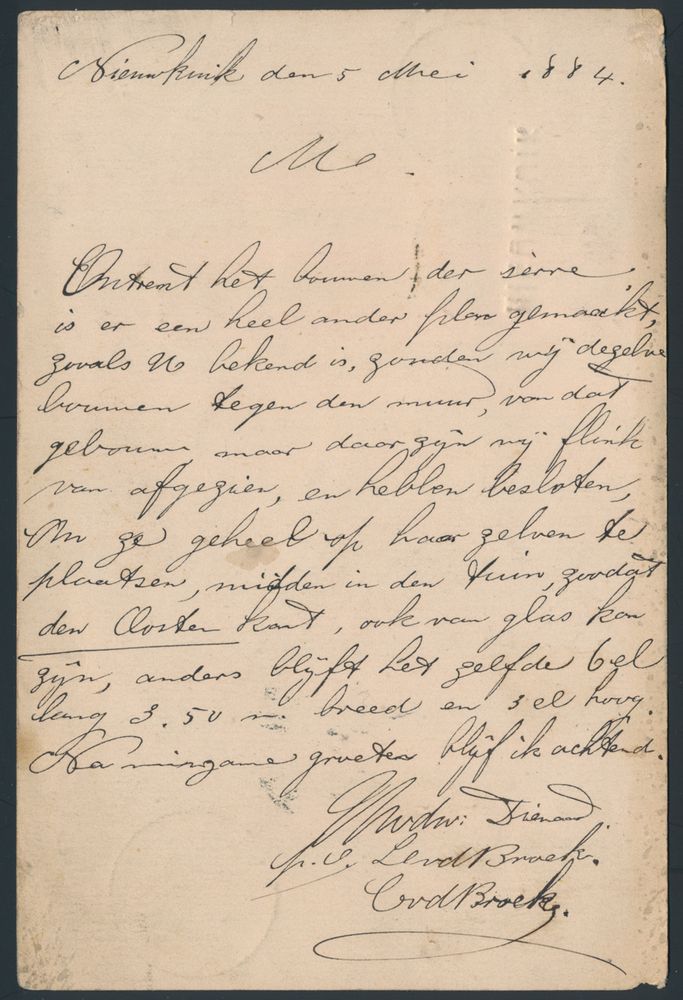 Nieuwkuik den 5 Mei 1884.
M
Omtrent het bouwen, der serre,
is er een heel ander plan gemaakt,
zooals U bekend is, zouden wij dezelve
bouwen tegen den muur, van dat
gebouw maar daar zijn wij flink
van afgezien, en hebben besloten,
Om ze geheel op haar zelven te
plaatsen, midden in den tuin, zoodat
den Ooster kant, ook van glas kan
zijn, anders blijft het zelfde 6 el
lang 3.50 m breed en 3 el hoog.
Na minzame groeten blijf ik achtend.
Uwdw: Dienaar
L vd Broek.
C vd Broek.